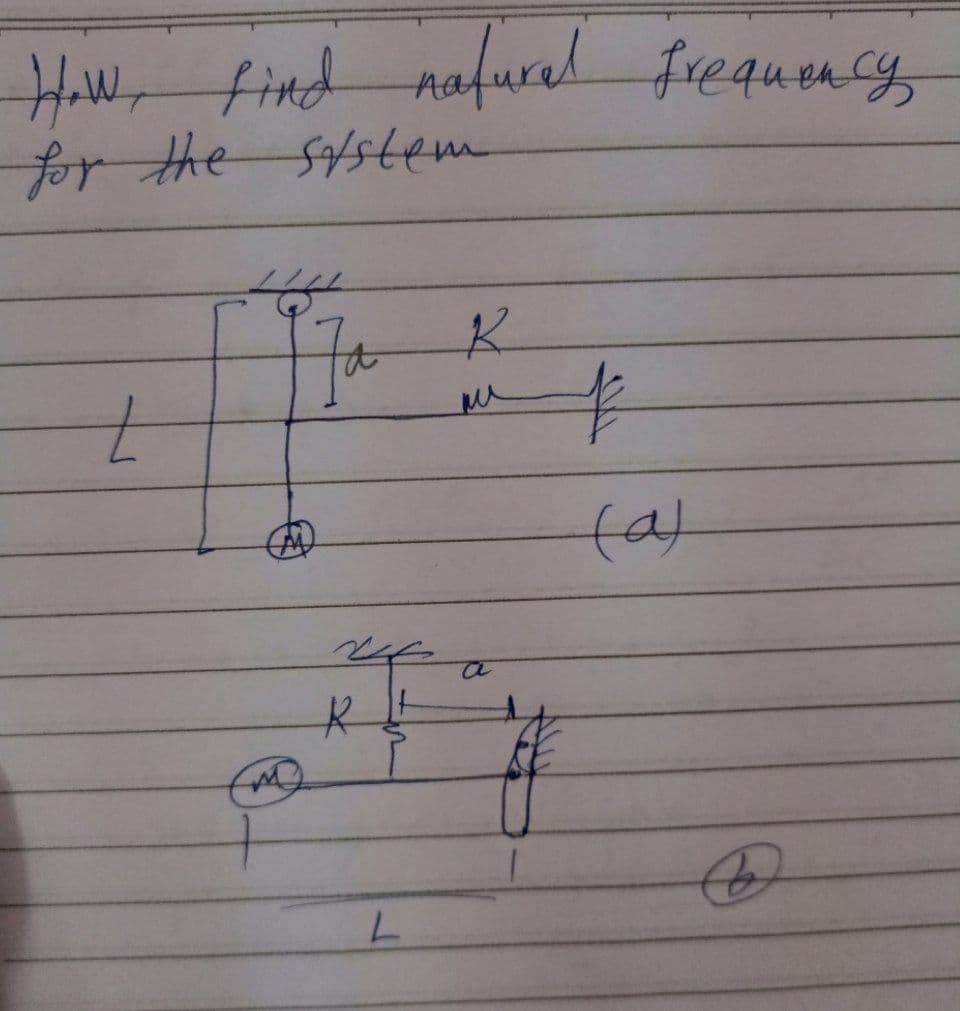 H.W, find natural frequency
for the system
a
K
L
M
(a)
a
K
m
b
L